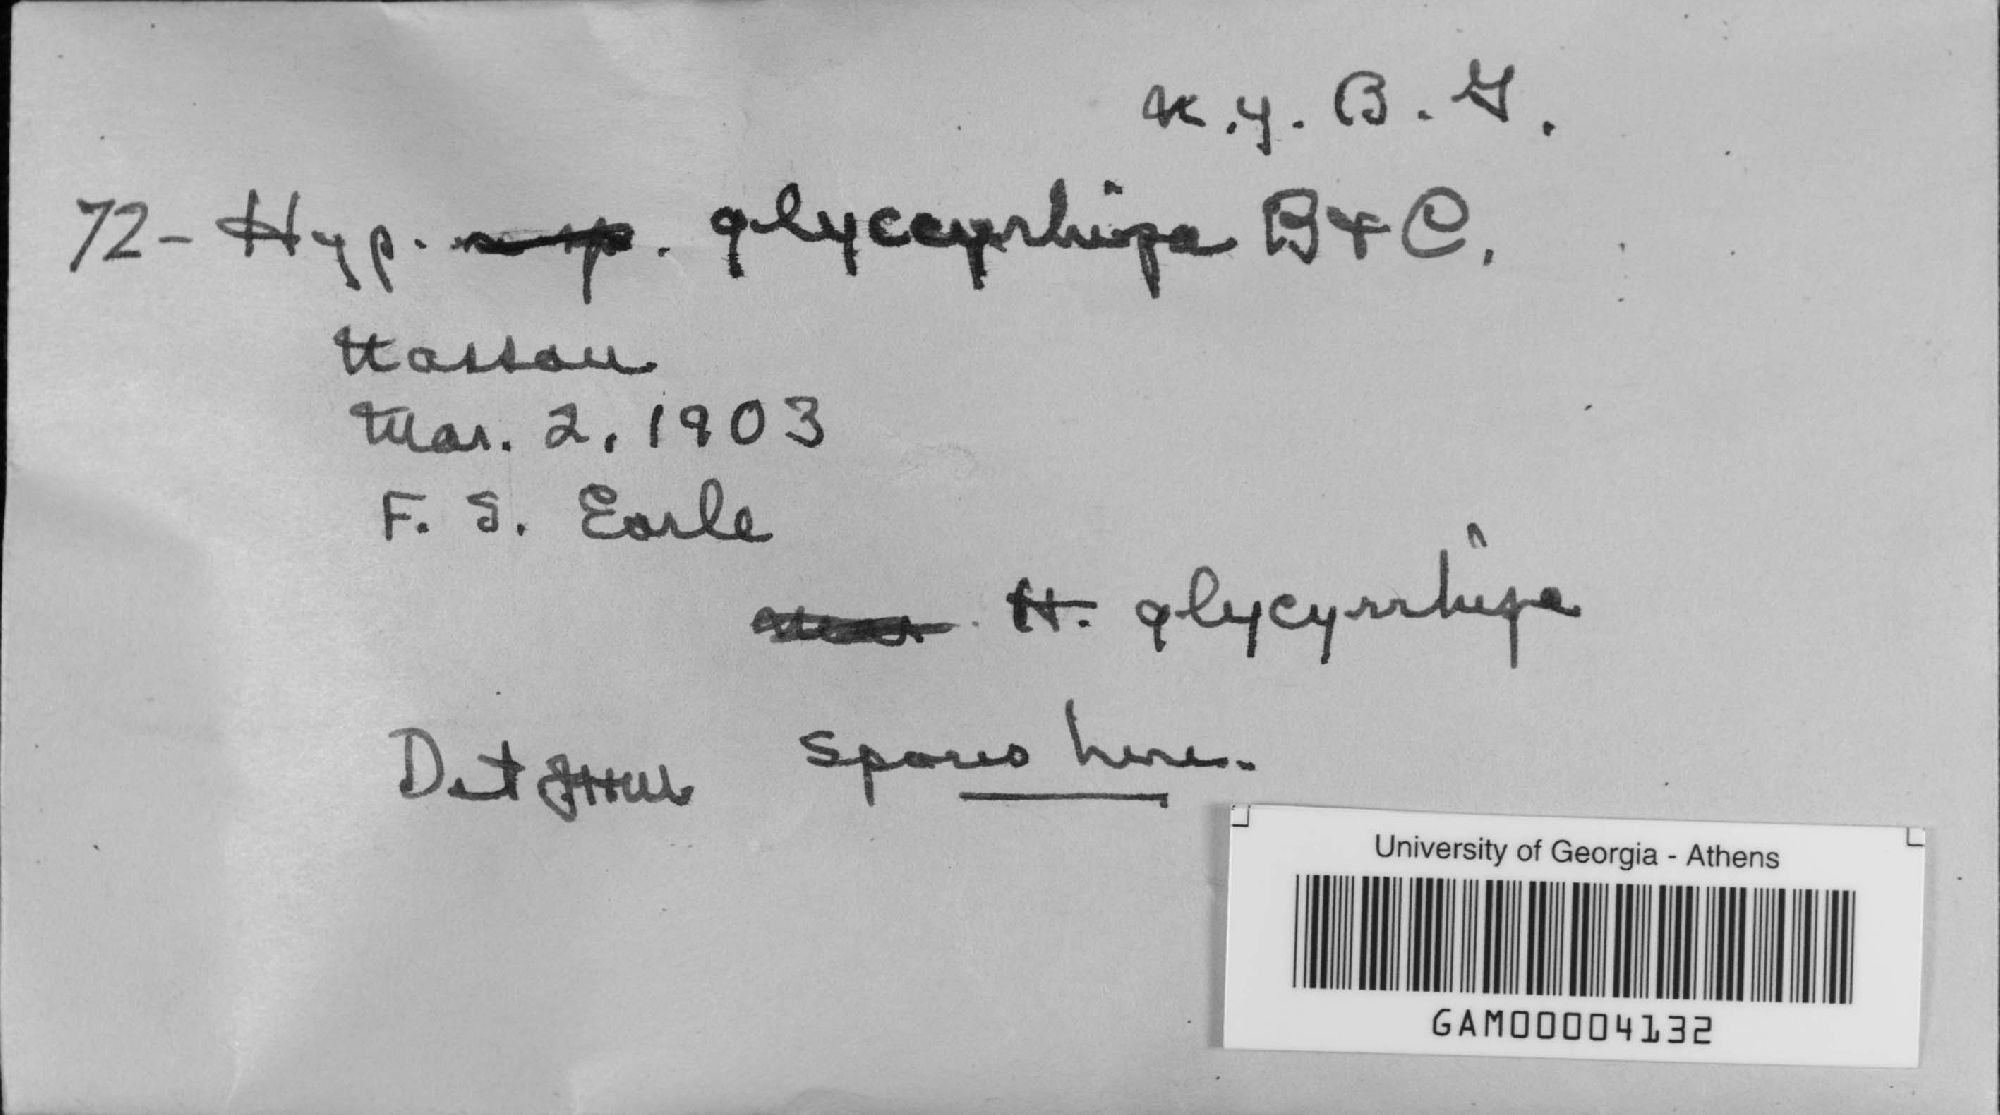 N.Y. B. G.
72- Hyp. glyceyrhiza B + C.
Nassau
Mar. 2, 1903
F. S. Earle
H. glycyrrhiza
Det JHM Spores here.
University of Georgia - Athens
GAM00004132